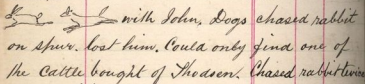 with John. Dogs chased rabbit
on spur. lost him. Could only find one of
the cattle bought of Thodsen. Chased rabbit twice